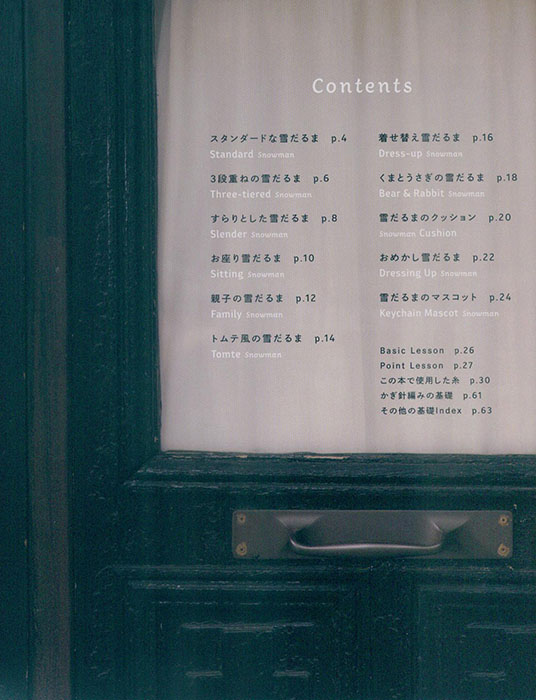 Contents
スタンダードな雪だるま p.4
Standard Snowman
3段重ねの雪だるま p.6
Three-tiered Snowman
すらりとした雪だるま p.8
Slender Snowman
お座り雪だるま p.10
Sitting Snowman
親子の雪だるま p.12
Family Snowman
トムテ風の雪だるま p.14
Tomte Snowman
着せ替え雪だるま p.16
Dress-up Snowman
くまとうさぎの雪だるま p.18
Bear & Rabbit Snowman
雪だるまのクッション p.20
Snowman Cushion
おめかし雪だるま p.22
Dressing Up Snowman
雪だるまのマスコット p.24
Keychain Mascot Snowman
Basic Lesson p.26
Point Lesson p.27
この本で使用した糸 p.30
かぎ針編みの基礎 p.61
その他の基礎Index p.63